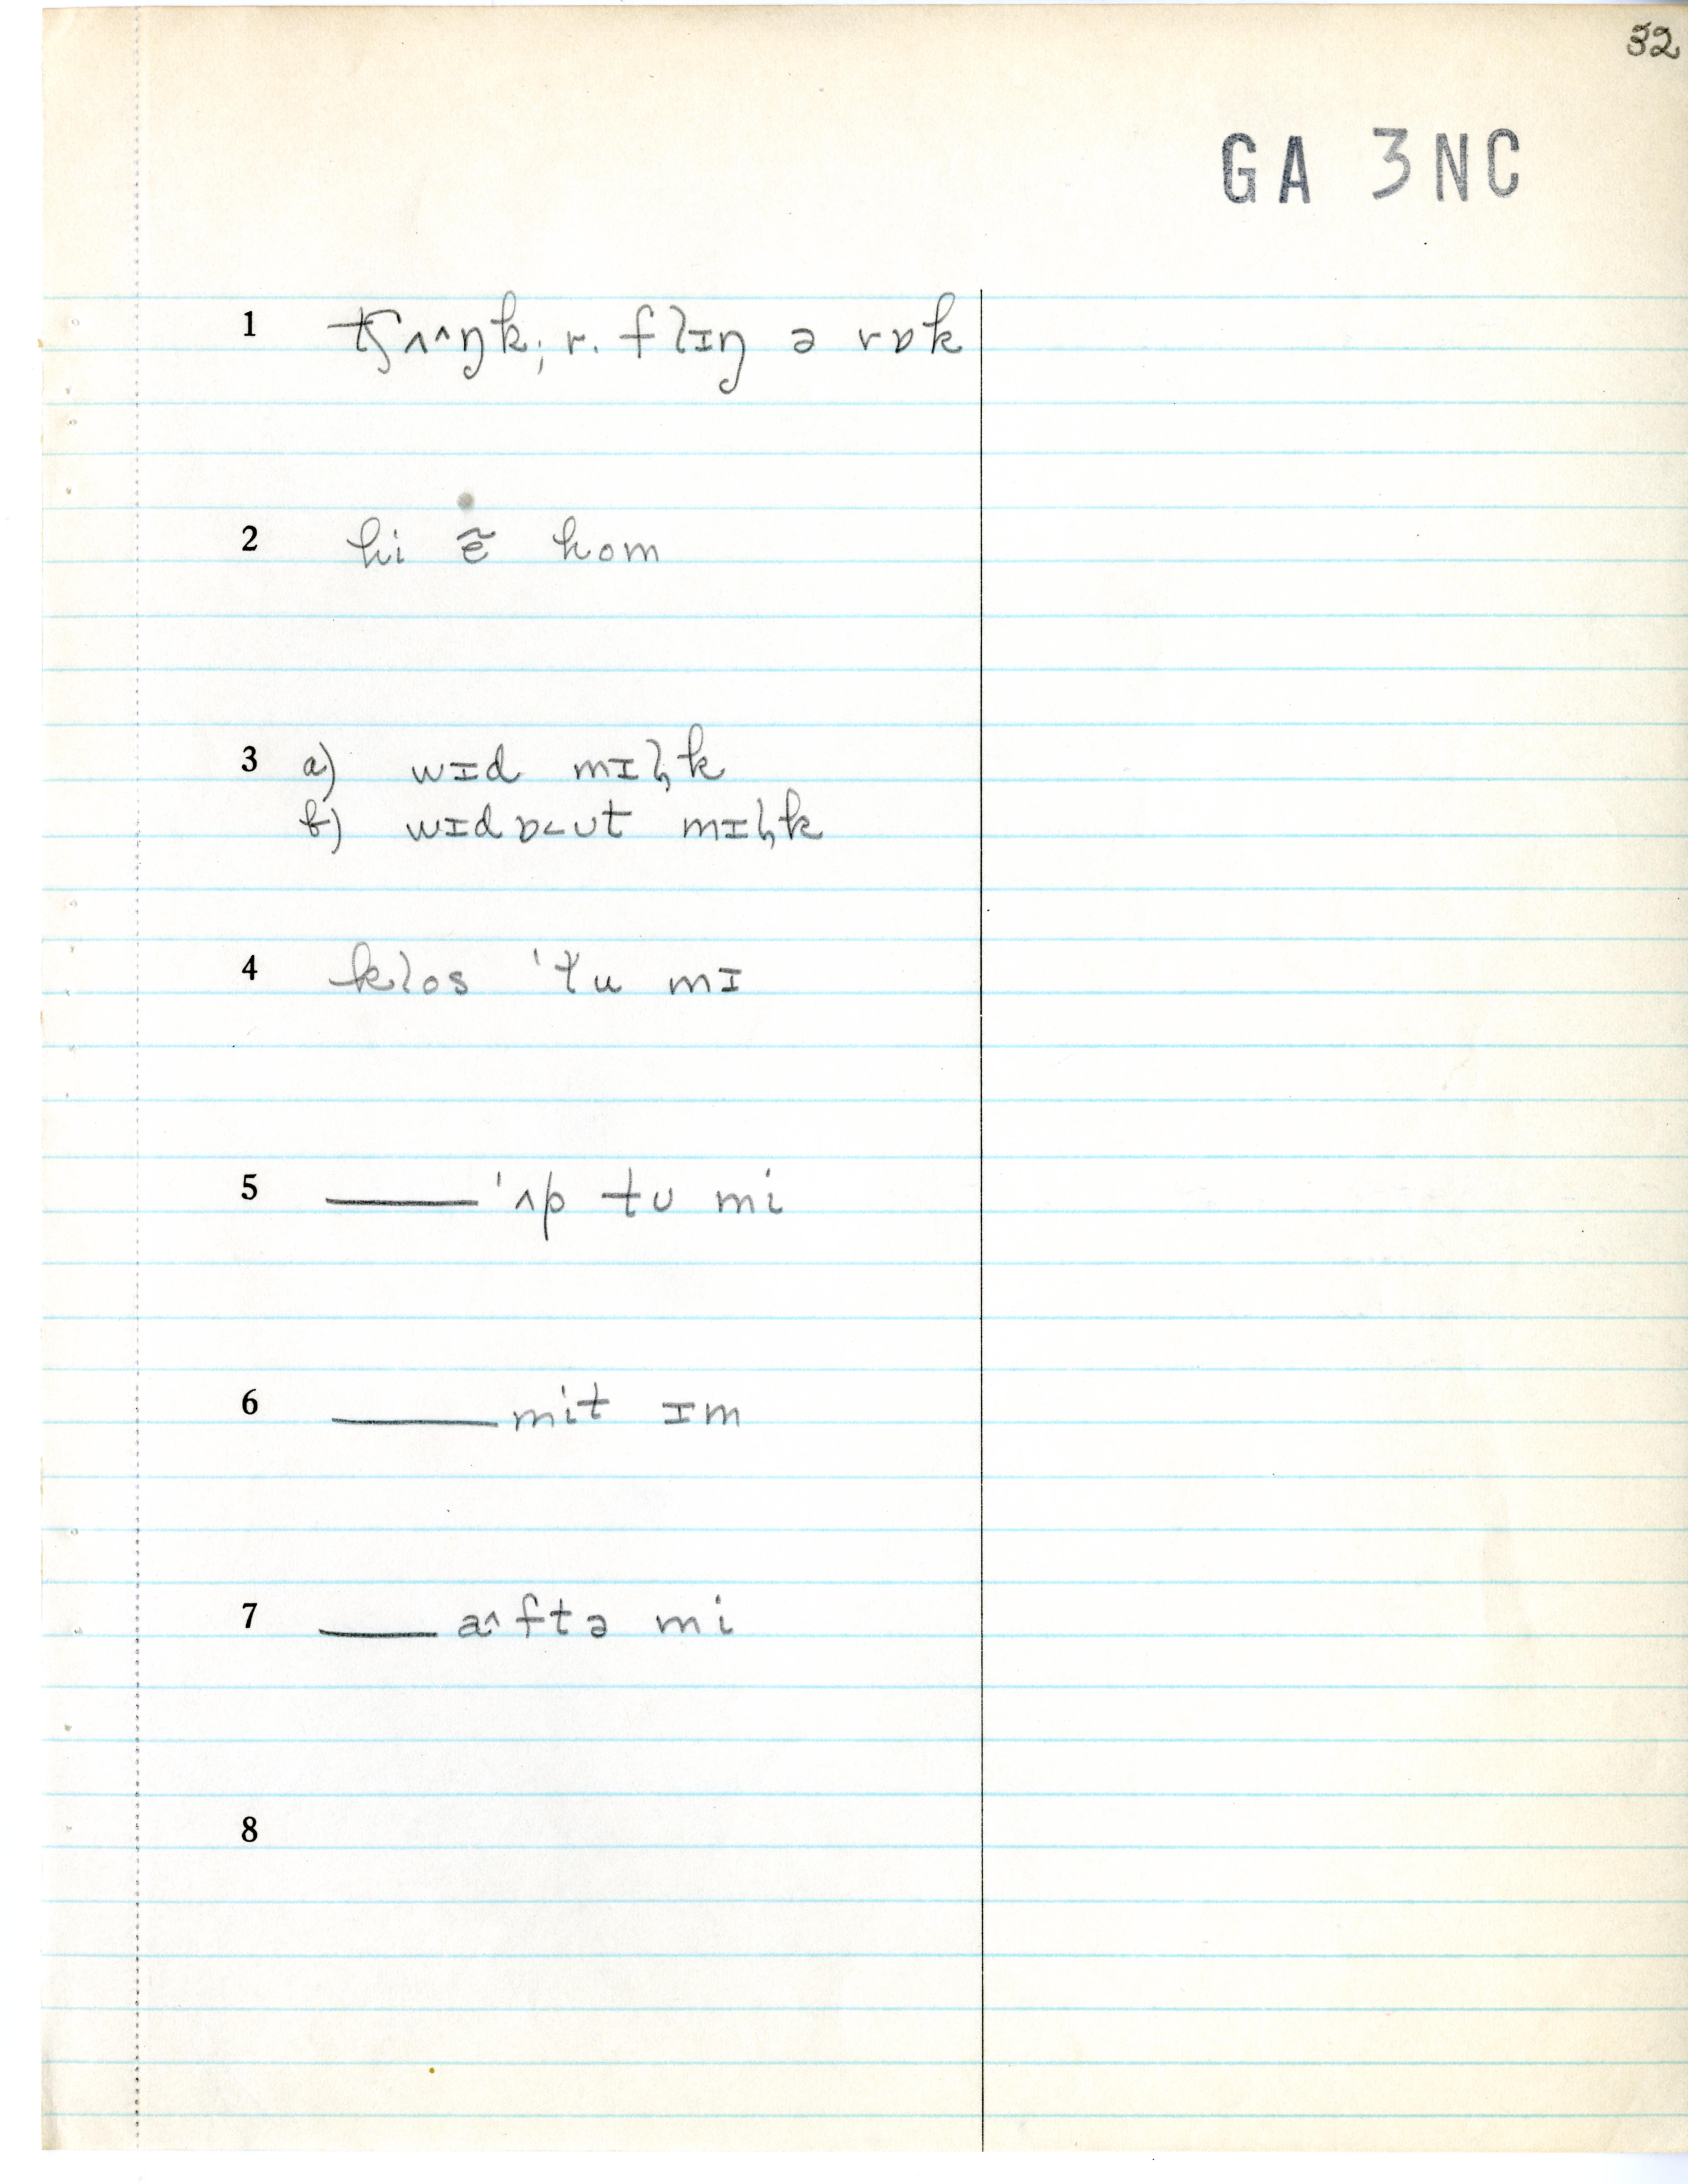 32
GA 3NC
1 tʃʌ^ŋk; r. flɪŋ ə rɒk
2 hi ẽ hom
3 a) wɪd mɪl̡k
b) wɪdɒ<ʊt mɪl̡k
4 klos 'tu mɪ
5 ___ 'ʌp tʊ mi
6 ___ mit ɪm
7 ___ a^ftə mi
8